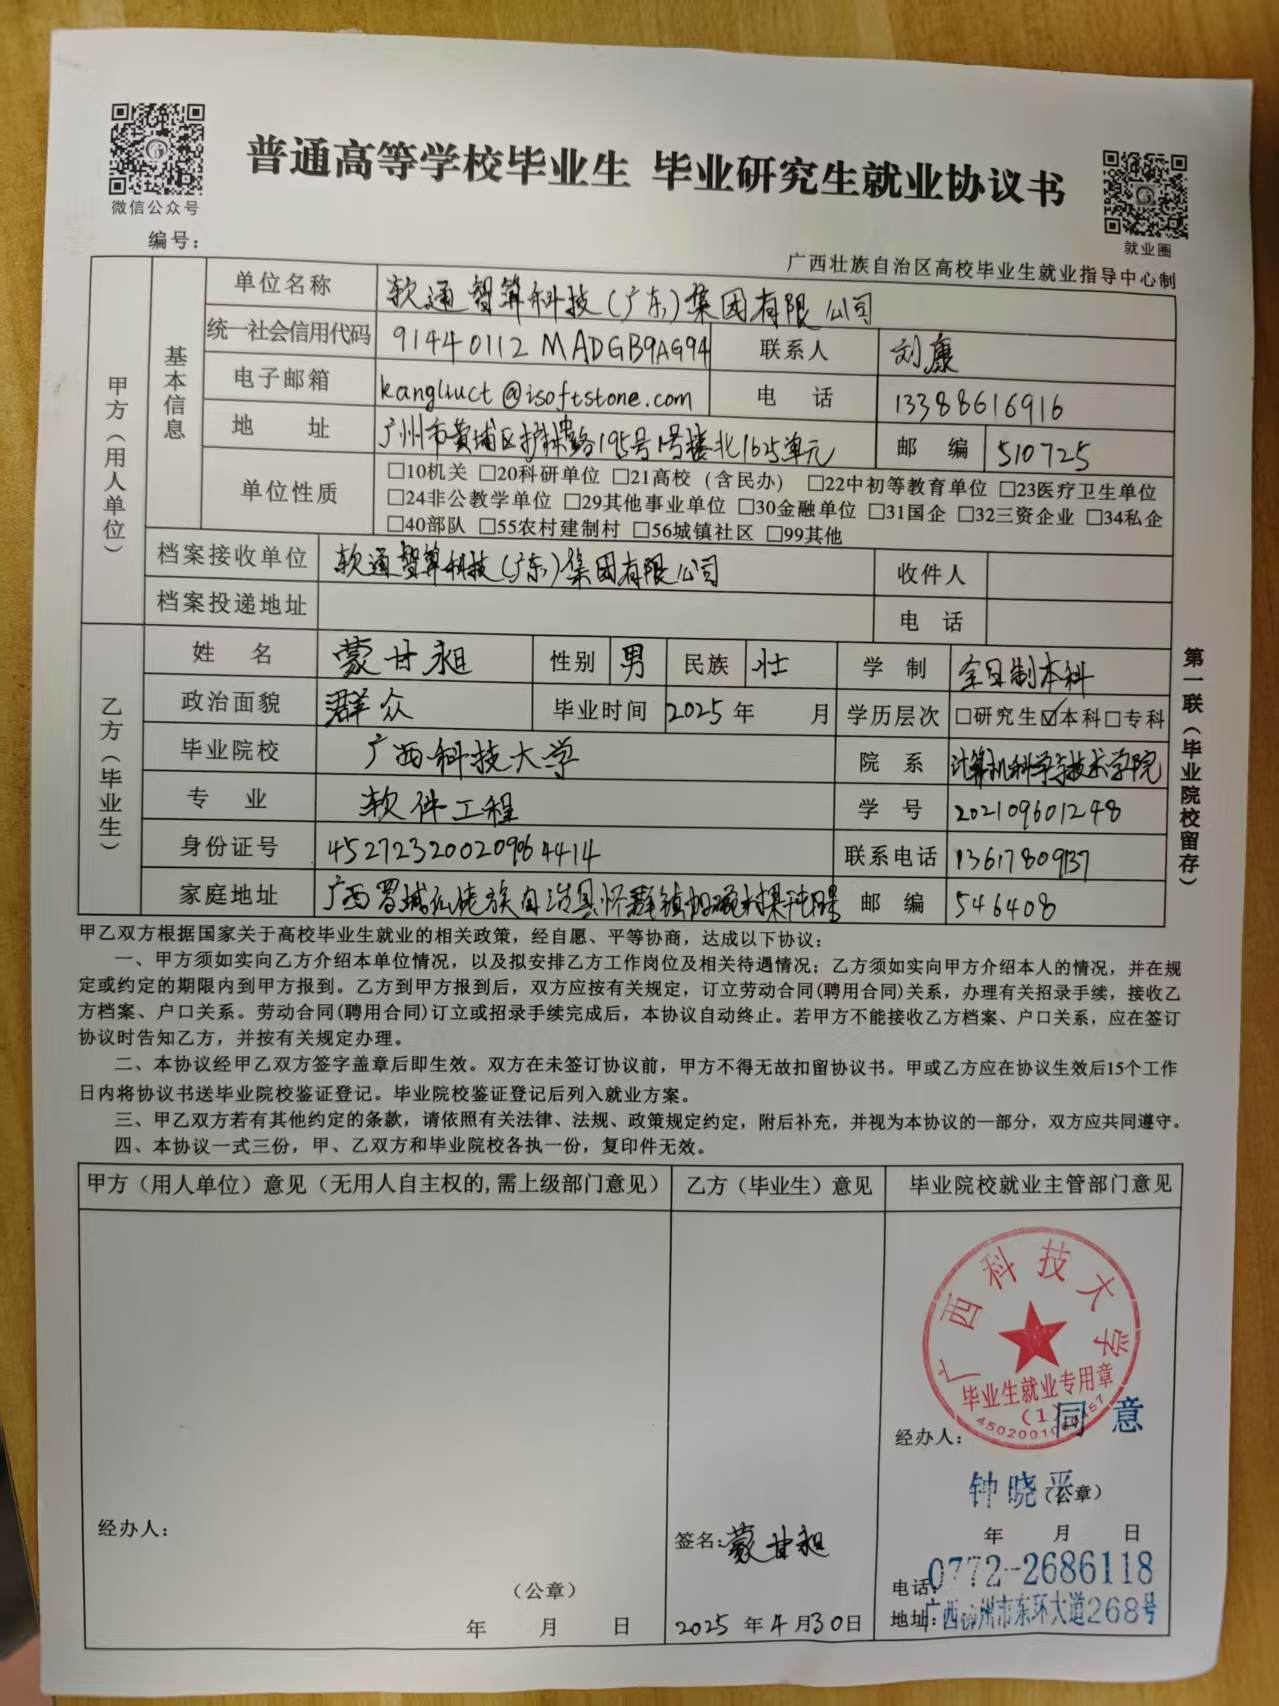 微信公众号
普通高等学校毕业生 毕业研究生就业协议书
就业圈
编号：
广西壮族自治区高校毕业生就业指导中心制
甲方（用人单位）
基本信息
单位名称 软通智算科技(广东)集团有限公司
统一社会信用代码 91440112MADGB9AG94 联系人 刘康
电子邮箱 kangliuct@isoftstone.com 电话 13388616916
地址 广州市黄埔区护林路195号1号楼北1625单元 邮编 510725
单位性质 □10机关 □20科研单位 □21高校（含民办） □22中初等教育单位 □23医疗卫生单位
□24非公教学单位 □29其他事业单位 □30金融单位 □31国企 □32三资企业 □34私企
□40部队 □55农村建制村 □56城镇社区 □99其他
档案接收单位 软通智算科技(广东)集团有限公司 收件人
档案投递地址 电话
乙方（毕业生）
姓名 蒙甘昶 性别 男 民族 壮 学制 全日制本科
政治面貌 群众 毕业时间 2025年 月 学历层次 □研究生☑本科□专科
毕业院校 广西科技大学 院系 计算机科学与技术学院
专业 软件工程 学号 202109601248
身份证号 联系电话 13617809137
家庭地址 广西罗城仫佬族自治县怀群镇 邮编 546408
第一联（毕业院校留存）
甲乙双方根据国家关于高校毕业生就业的相关政策，经自愿、平等协商，达成以下协议：
一、甲方须如实向乙方介绍本单位情况，以及拟安排乙方工作岗位及相关待遇情况；乙方须如实向甲方介绍本人的情况，并在规
定或约定的期限内到甲方报到。乙方到甲方报到后，双方应按有关规定，订立劳动合同(聘用合同)关系，办理有关招录手续，接收乙
方档案、户口关系。劳动合同(聘用合同)订立或招录手续完成后，本协议自动终止。若甲方不能接收乙方档案、户口关系，应在签订
协议时告知乙方，并按有关规定办理。
二、本协议经甲乙双方签字盖章后即生效。双方在未签订协议前，甲方不得无故扣留协议书。甲或乙方应在协议生效后15个工作
日内将协议书送毕业院校鉴证登记。毕业院校鉴证登记后列入就业方案。
三、甲乙双方若有其他约定的条款，请依照有关法律、法规、政策规定约定，附后补充，并视为本协议的一部分，双方应共同遵守。
四、本协议一式三份，甲、乙双方和毕业院校各执一份，复印件无效。
甲方（用人单位）意见（无用人自主权的,需上级部门意见） 乙方（毕业生）意见 毕业院校就业主管部门意见
广西科技大学
毕业生就业专用章
(1)
同意
经办人：
钟晓平
（公章）
经办人：
签名：蒙甘昶
年 月 日
电话：0772-2686118
（公章）
地址：广西柳州市东环大道268号
年 月 日
2025年4月30日